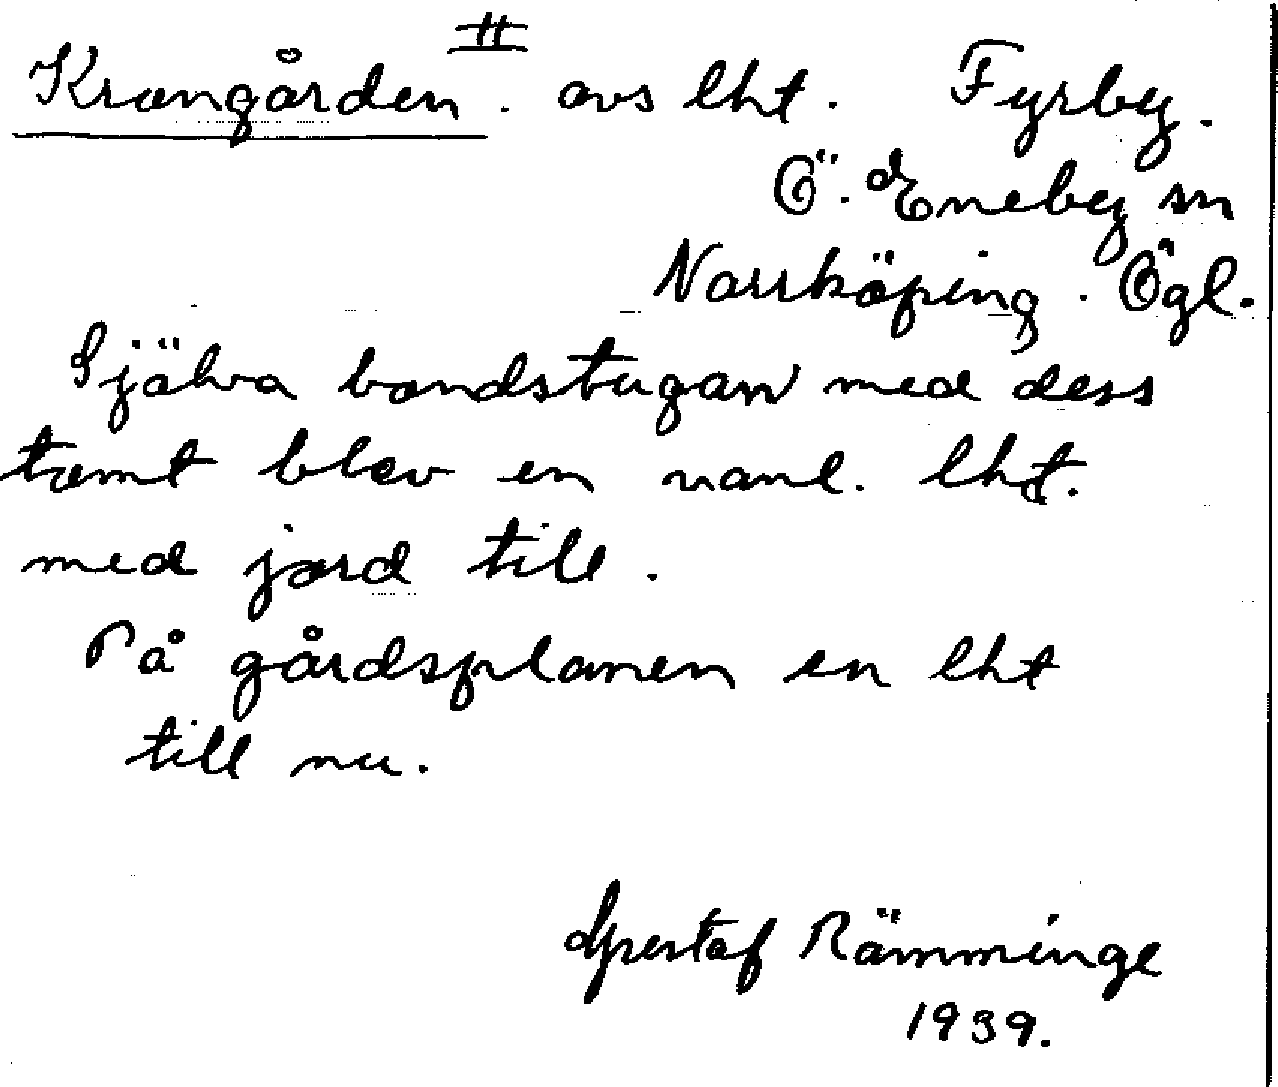 Krongården II. avs lht. Fyrby.
Ö. Eneby sn
Norrköping. Ögl.
Själva bondstugan med dess
tomt blev en vanl. lht.
med jord till.
På gårdsplanen en lht
till nu.
Gustaf Rämminge
1939.